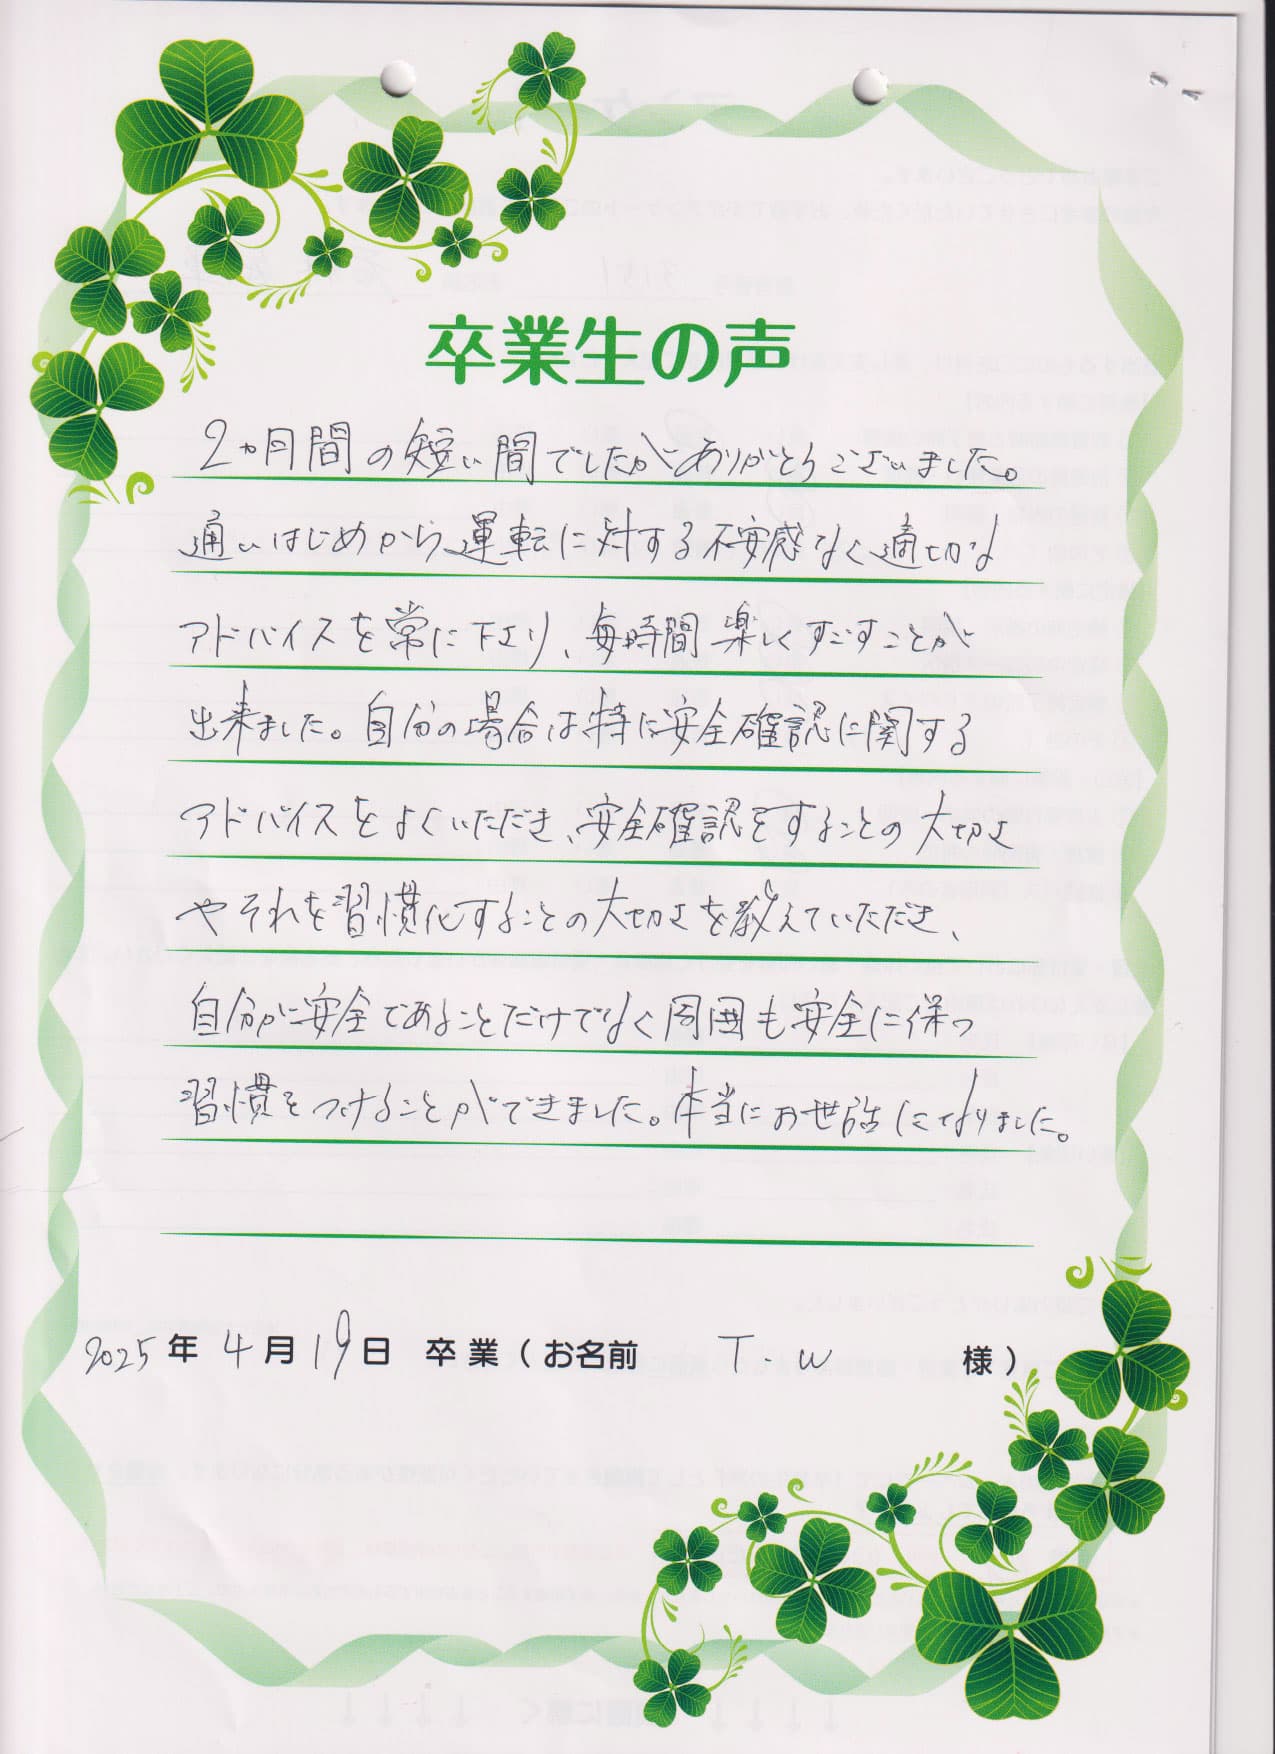 卒業生の声
2ヵ月間の短い間でしたがありがとうございました。
通いはじめから運転に対する不安感なく適切な
アドバイスを常に下さり、毎時間楽しくすごすことが
出来ました。自分の場合は特に安全確認に関する
アドバイスをよくいただき、安全確認をすることの大切さ
やそれを習慣化することの大切さを教えていただき、
自分が安全であることだけでなく周囲も安全に保つ
習慣をつけることができました。本当にお世話になりました。
2025年4月19日 卒業(お名前 T.W 様)